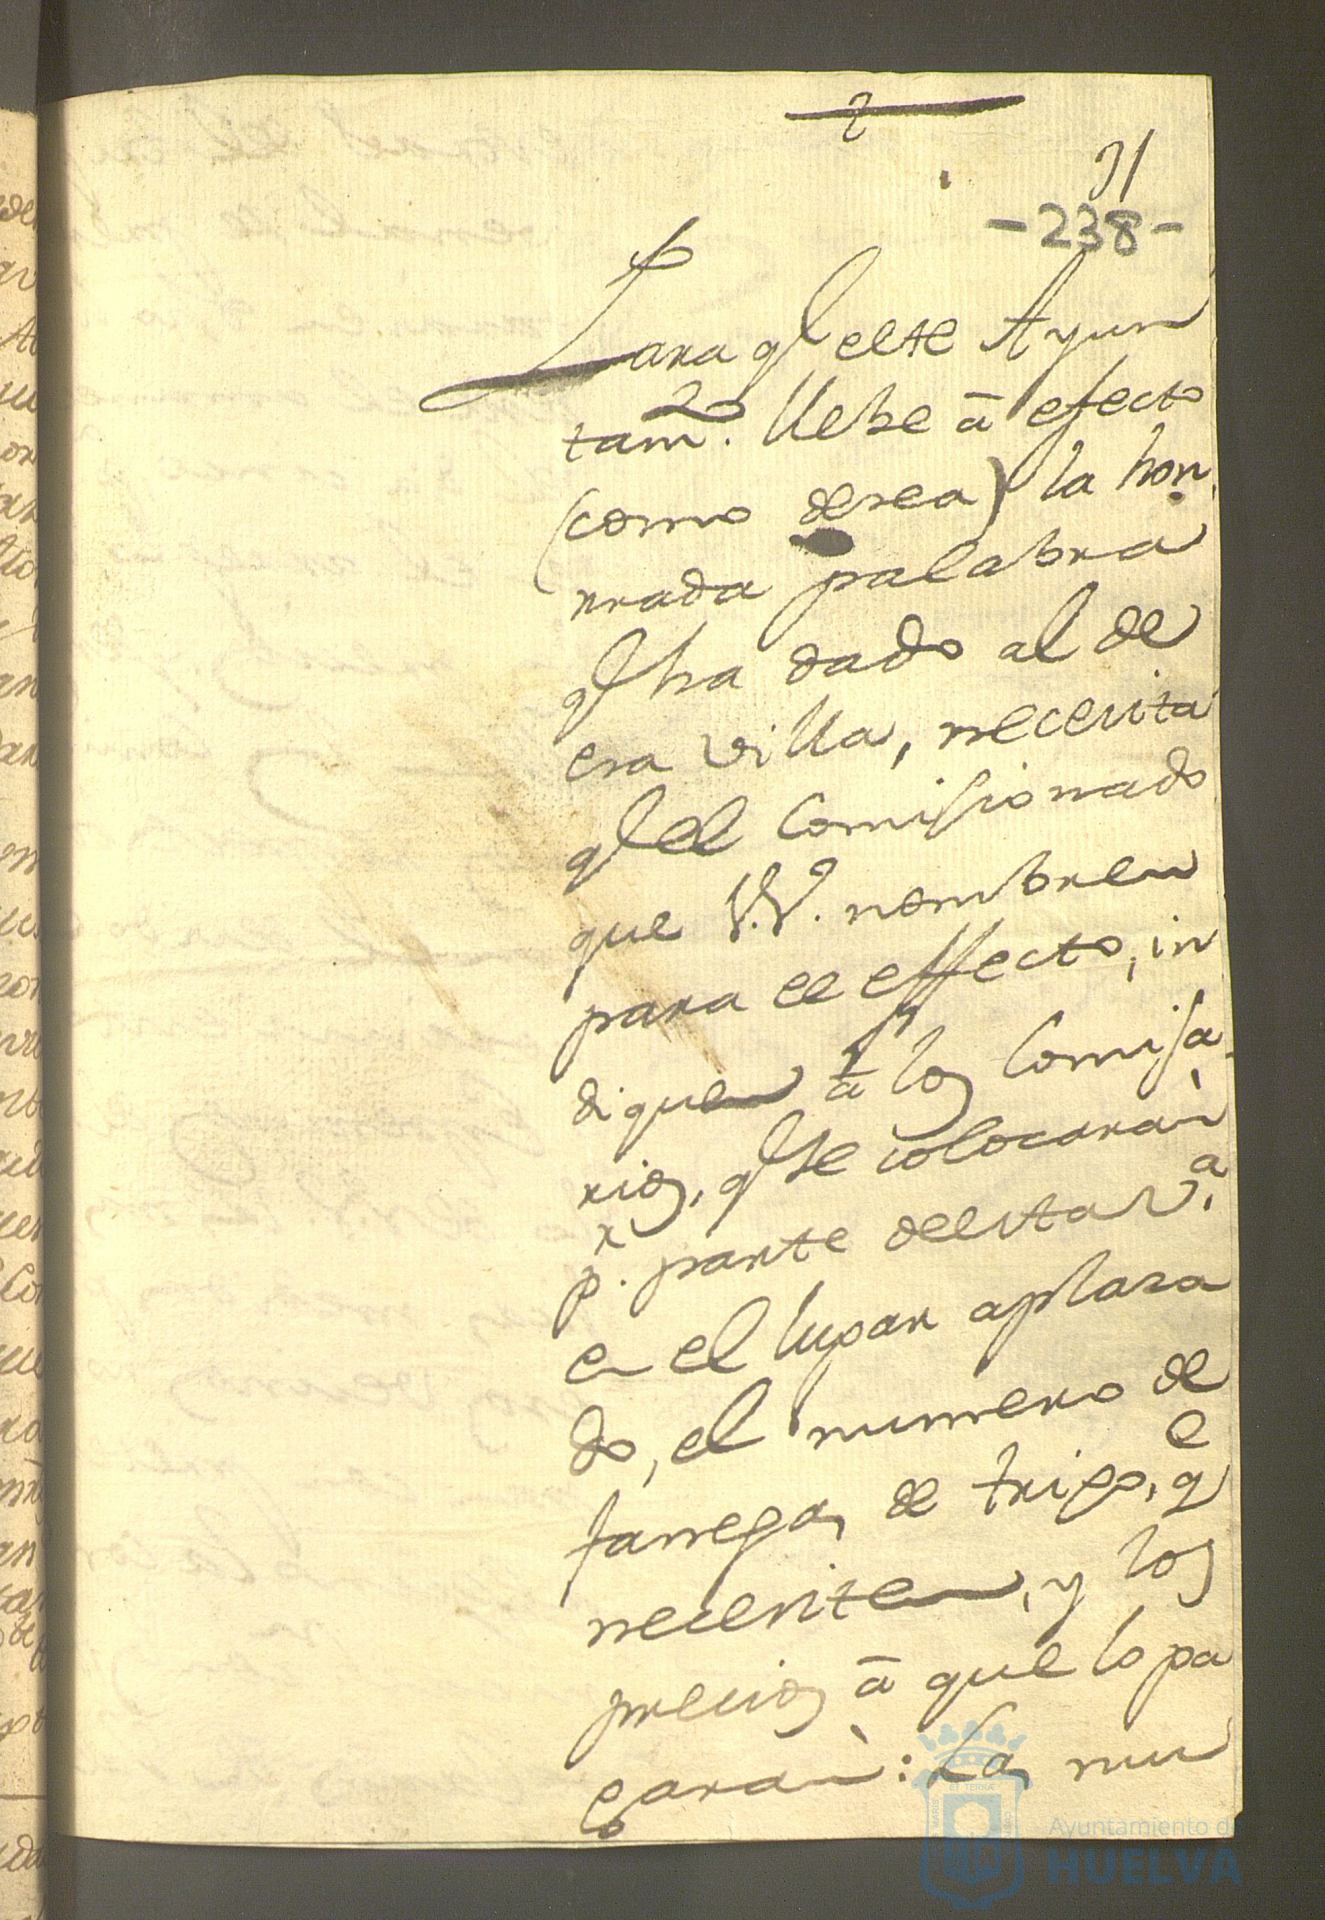 2
31
-238-
Para q.e este Ayun
tam.to llebe â efecto
(como desea) la hon
rrada palabra
q.e ha dado al de
esa villa, necesita
q.e el Comisionado
que V.V.s nombren
para el effecto, in
diquen â los Comisa
rios, q.e se colocaràn
p.r parte de esta V.a
en el lugar aplasa
do, el numero de
fanegas de trigo, q.e
necesiten, y los
precios â que lo pa
garàn: Las mu
Ayuntamiento de
HUELVA